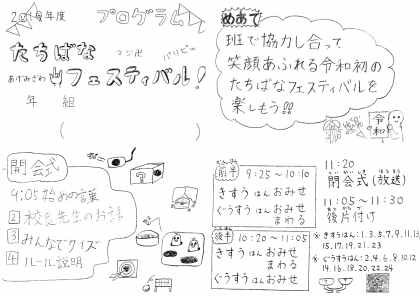 2019年度
プログラム
たちばな
マジ卍 パリピ
あけみざわ
フェスティバル!
年 組
( )
めあて
班で協力し合って
笑顔あふれる令和初の
たちばなフェスティバルを
楽しもう!!
令和
開会式
9:05 始めの言葉
2 校長先生のお話
3 みんなでクイズ
4 ルール説明
前半 9:25~10:10
きすうはんおみせ
まわる
ぐうすうはんおみせ
後半 10:20~11:05
きすうはんおみせ
まわる
ぐうすうはんおみせ
11:20
閉会式(放送)
11:05~11:30
後片付け
※きすうはん:1,3,5,7,9,11,13,
15,17,19,21,23
※ぐうすうはん:2,4,6,8,10,12
14,16,18,20,22,24